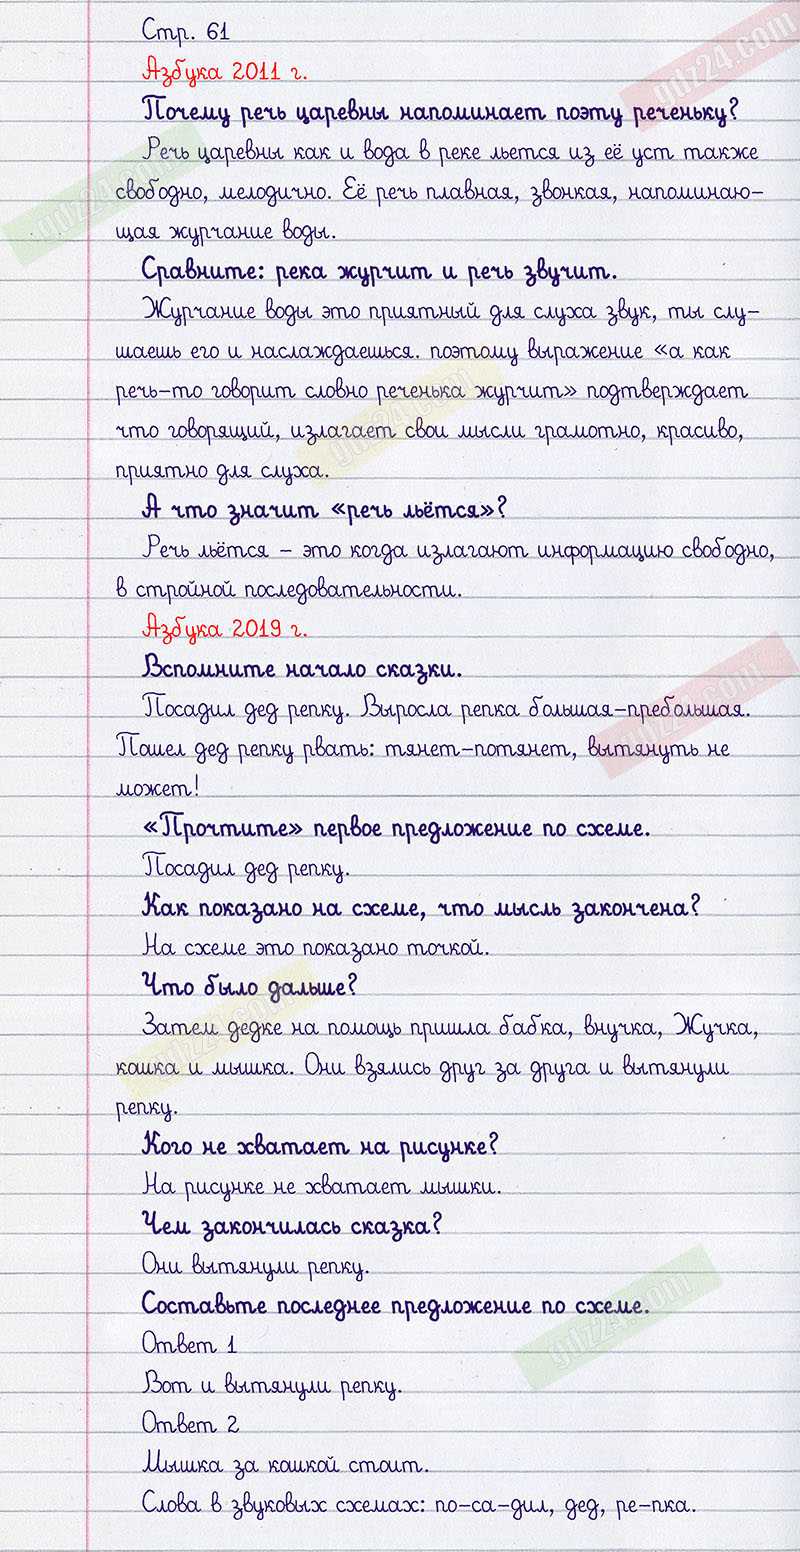 Стр. 61
Азбука 2011 г.
Почему речь царевны напоминает поэту реченьку?
Речь царевны как и вода в реке льется из её уст также
свободно, мелодично. Её речь плавная, звонкая, напоминаю-
щая журчание воды.
Сравните: река журчит и речь звучит.
Журчание воды это приятный для слуха звук, ты слу-
шаешь его и наслаждаешься. поэтому выражение «а как
речь-то говорит словно реченька журчит» подтверждает
что говорящий, излагает свои мысли грамотно, красиво,
приятно для слуха.
А что значит «речь льётся»?
Речь льётся – это когда излагают информацию свободно,
в стройной последовательности.
Азбука 2019 г.
Вспомните начало сказки.
Посадил дед репку. Выросла репка большая-пребольшая.
Пошел дед репку рвать: тянет-потянет, вытянуть не
может!
«Прочтите» первое предложение по схеме.
Посадил дед репку.
Как показано на схеме, что мысль закончена?
На схеме это показано точкой.
Что было дальше?
Затем дедке на помощь пришла бабка, внучка, Жучка,
кошка и мышка. Они взялись друг за друга и вытянули
репку.
Кого не хватает на рисунке?
На рисунке не хватает мышки.
Чем закончилась сказка?
Они вытянули репку.
Составьте последнее предложение по схеме.
Ответ 1
Вот и вытянули репку.
Ответ 2
Мышка за кошкой стоит.
Слова в звуковых схемах: по-са-дил, дед, ре-пка.
gdz24.com
gdz24.com
gdz24.com
gdz24.com
gdz24.com
gdz24.com